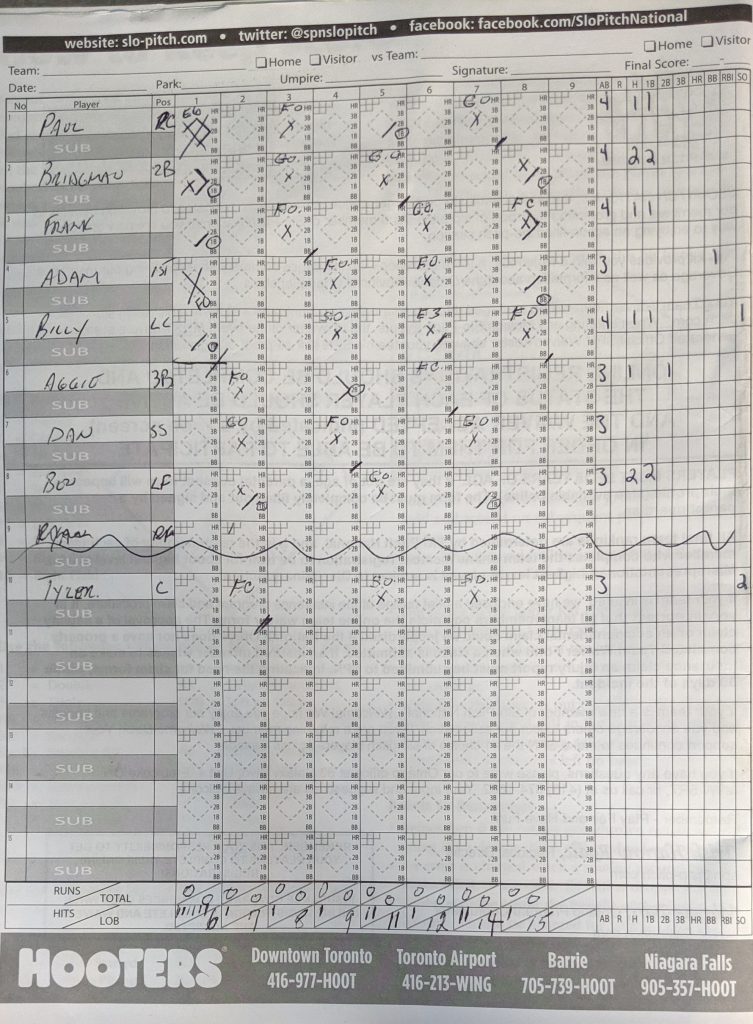 website: slo-pitch.com • twitter: @spnslopitch • facebook: facebook.com/SloPitchNational
Team: Home Visitor vs Team: Home Visitor
Date: Park: Umpire: Signature: Final Score:
No Player Pos 1 2 3 4 5 6 7 8 9 AB R H 1B 2B 3B HR BB RBI SO
1 PAUL RC E6 FO GO 4 11
SUB
2 BRIDGMAN 2B GO. G.O 4 22
SUB
3 FRANK F.O. G.O. FC 4 11
SUB
4 ADAM 1ST FO FO. FO. 3 1
SUB
5 BILLY LC S.O. E3 FO 4 11 1
SUB
6 AGGIE 3B FO FC 3 1 1
SUB
7 DAN SS GO FO G.O 3
SUB
8 BOU LF G.O. 3 22
SUB
9
SUB
10 TYLER. C FC S.O. S.O. 3 2
SUB
11
SUB
12
SUB
13
SUB
14
SUB
15
SUB
RUNS TOTAL 0 0 0 0 0 0 0 0 0 0 0 0 0 0 0 0
HITS LOB 6 1 7 1 8 1 9 11 11 1 12 11 14 1 15 AB R H 1B 2B 3B HR BB RBI SO
HOOTERS
Downtown Toronto 416-977-HOOT
Toronto Airport 416-213-WING
Barrie 705-739-HOOT
Niagara Falls 905-357-HOOT